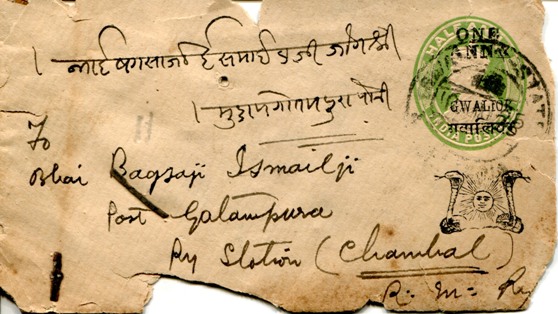 भाई बगसाजी ईसमाईलजी जोग श्री
मुकाम गोतमपुरा
HALF
ONE
ANNA
STATE
GWALIOR
गवालियर
INDIA POSTAGE
To
Bhai Bagsaji Ismailji
Post Galampura
Ry Station (Chambal)
R. M. Ry